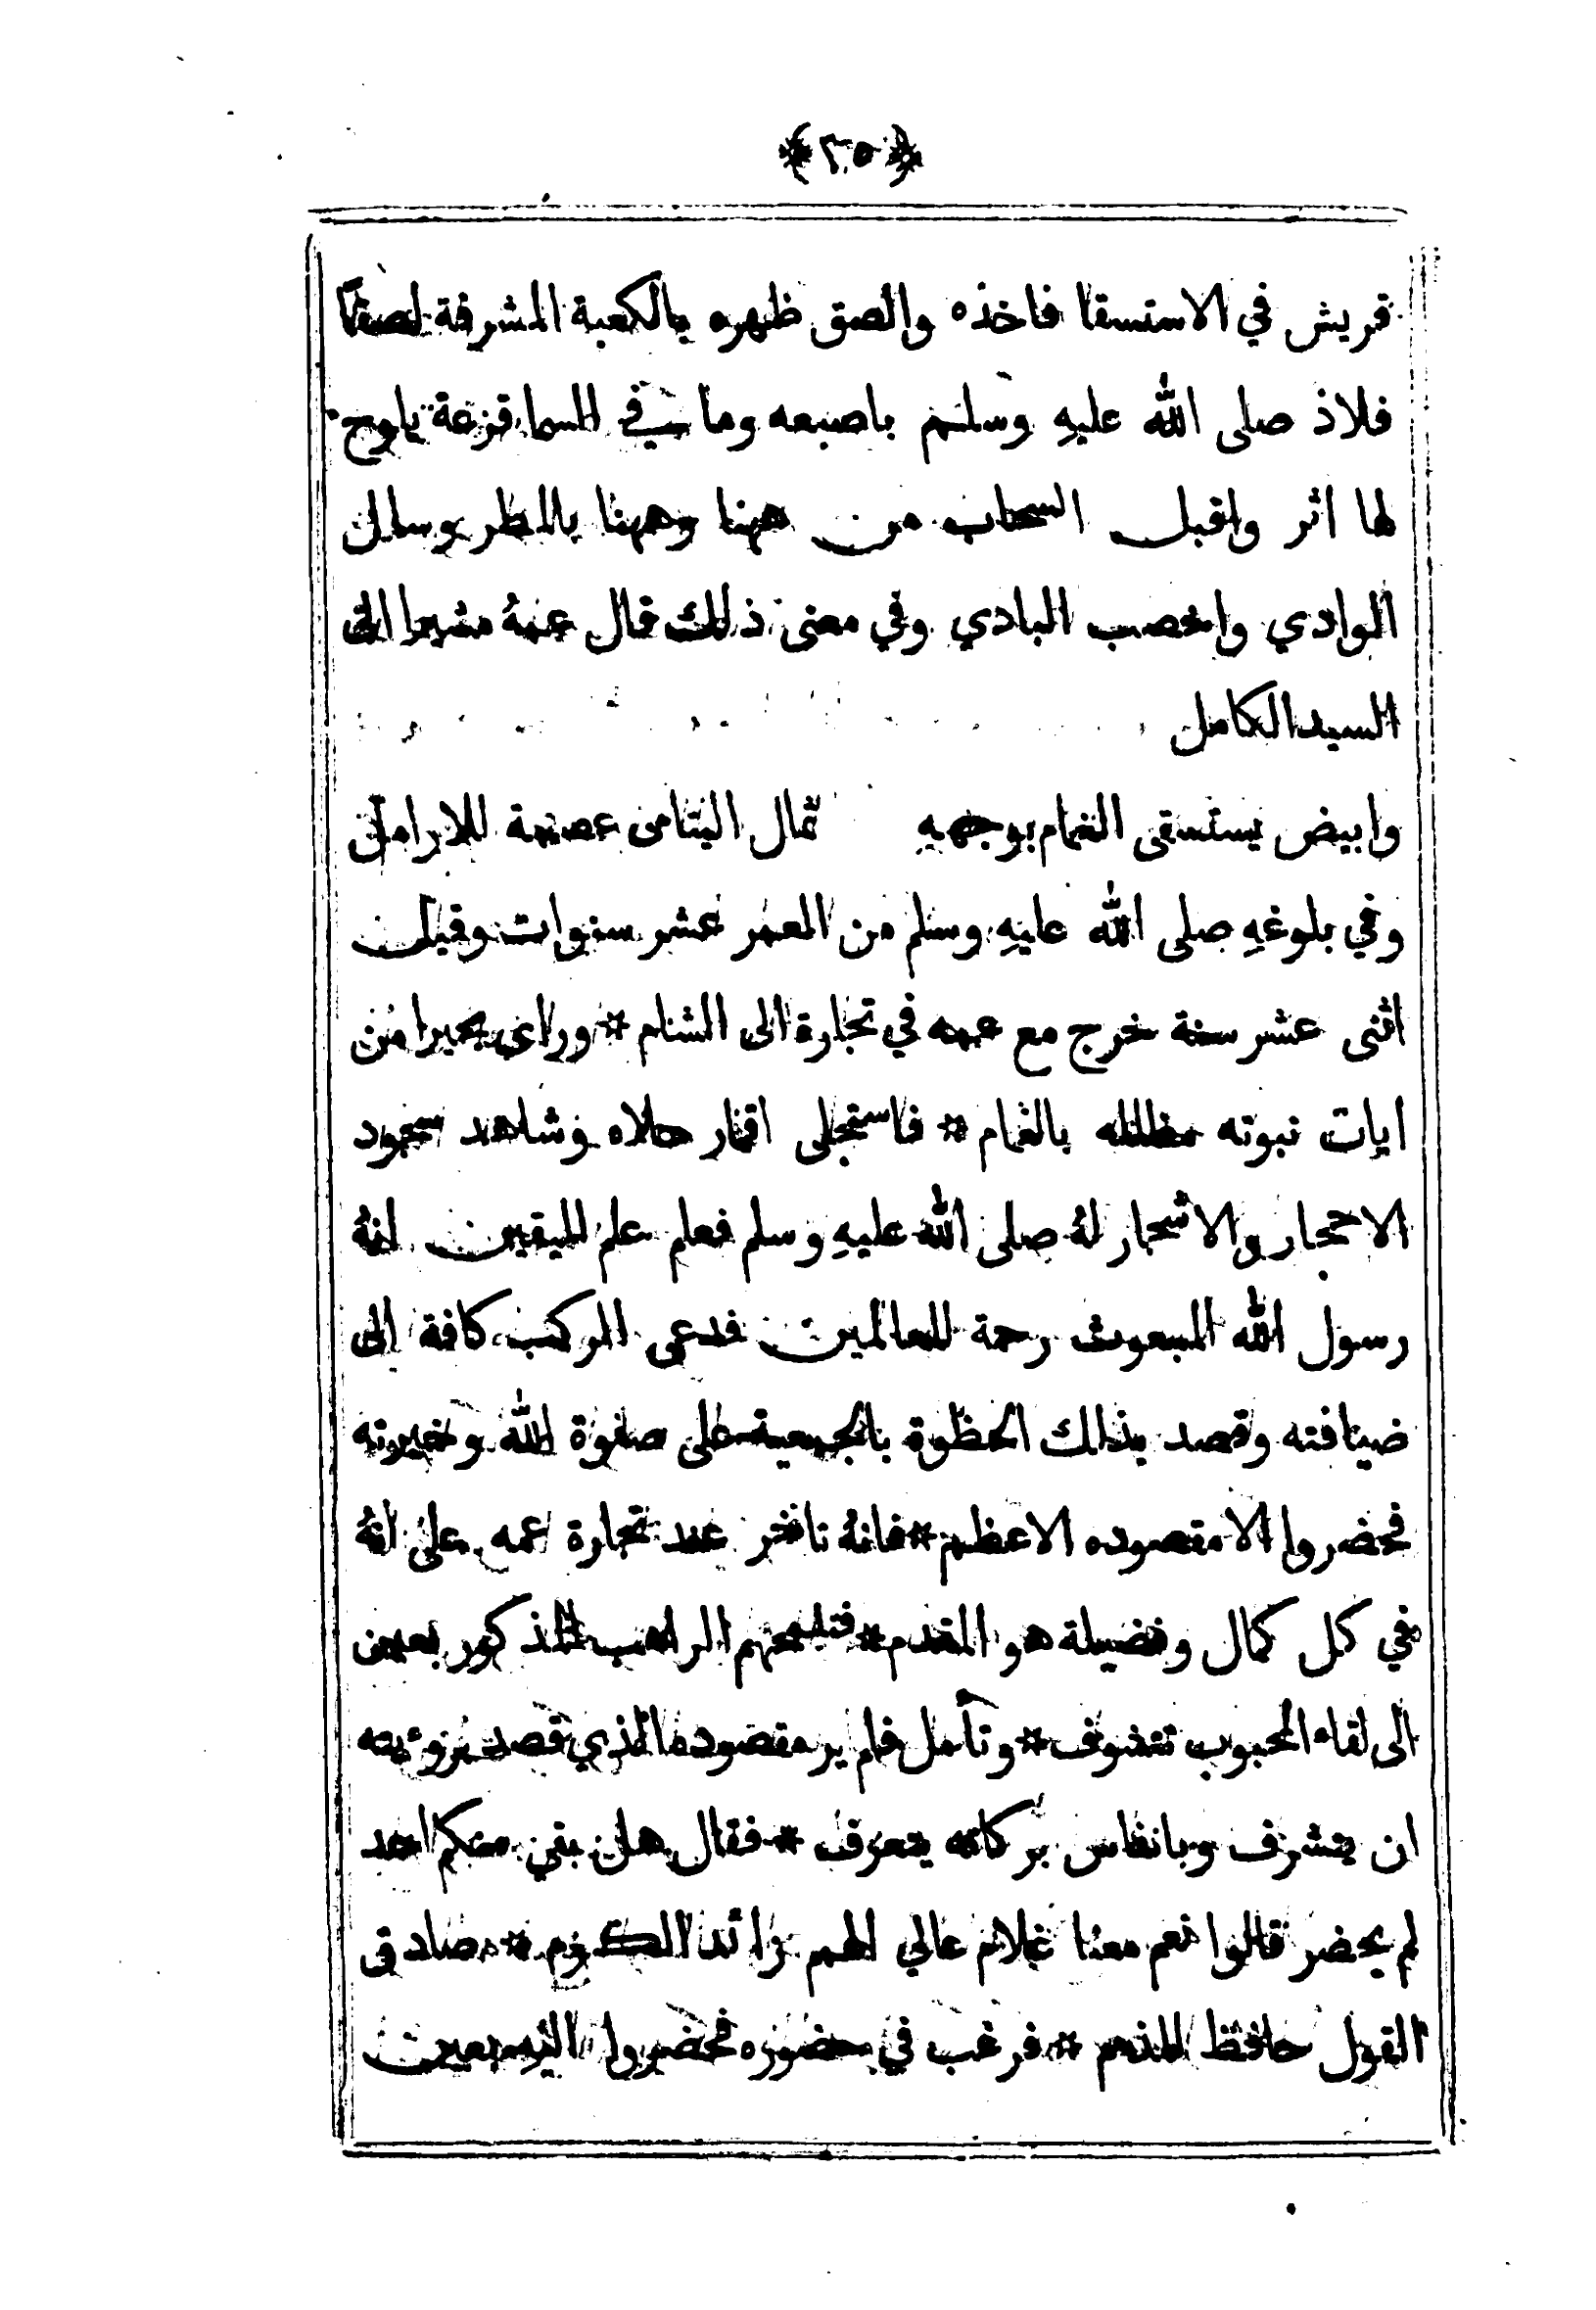 ﴿٢٥﴾
قريش في الاستسقا فاخذه والصق ظهره بالكعبة المشرفة لصقاً
فلاذ صلى الله عليهِ وسلم باصبعه وما في السما قزعة يلوح
لها اثر واقبل السحاب من ههنا وههنا بالمطر وسال
الوادي واخصب البادي وفي معنى ذلك قال عمهُ مشيرا الى
السيد الكامل
وابيض يستسقى الغمام بوجههِ ثمال اليتامى عصمة للارامل
وفي بلوغهِ صلى الله عليهِ وسلم من العمر عشر سنوات وقيل
اثنى عشر سنة خرج مع عمه في تجارة الى الشام * وراى بحيرا من
ايات نبوته مظلله بالغمام * فاستجلى اقمار حلاه وشاهد سجود
الاحجار والاشجار لهُ صلى الله عليهِ وسلم فعلم علم اليقين انهُ
رسول الله المبعوث رحمة للعالمين فدعى الركب كافة الى
ضيافته وقصد بذلك الحظوة بالجمعية على صفوة الله وخيرته
فحضروا الا مقصوده الاعظم * فانهُ تاخر عند تجارة عمه على انهُ
في كل كمال وفضيلة هو المقدم * معهم الراهب المذكور بعين
الى لقاء المحبوب تتشوف * وتأمل فلم ير مقصوده الذي قصد برؤيته
ان يتشرف وبانفاس بركاته يتعرف * فقال هل بقي منكم احد
لم يحضر قالوا نعم معنا غلام عالي الهمم زائد الكرم * صادق
القول حافظ الذمم * فرغب في حضوره فحضروا اليهِ بعين